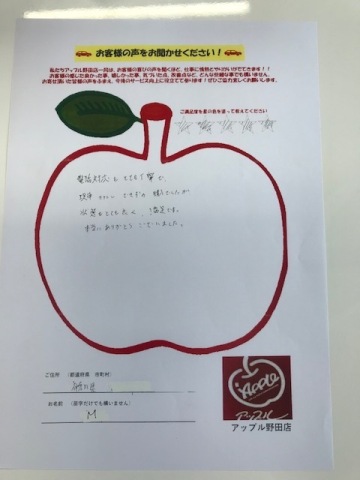 お客様の声をお聞かせください！
私たちアップル野田店一同は、お客様の喜びの声を聞くほど、仕事に情熱とやりがいがでてきます！！
お客様の感じた良かった事、嬉しかった事、気づいた点、改善点など、どんな些細な事でも構いません。
お寄せ頂いた皆様の声をふまえ、今後のサービス向上に役立てて参ります！ぜひご協力宜しくお願いします。
ご満足度を星の色を塗って教えてください
電話対応もとても丁寧で、
できず
状態もとても良く、満足です。
本当にありがとうございました。
ご住所 (都道府県 市町村)
お名前 (苗字だけでも構いません)
M
Apple
アップル
アップル野田店